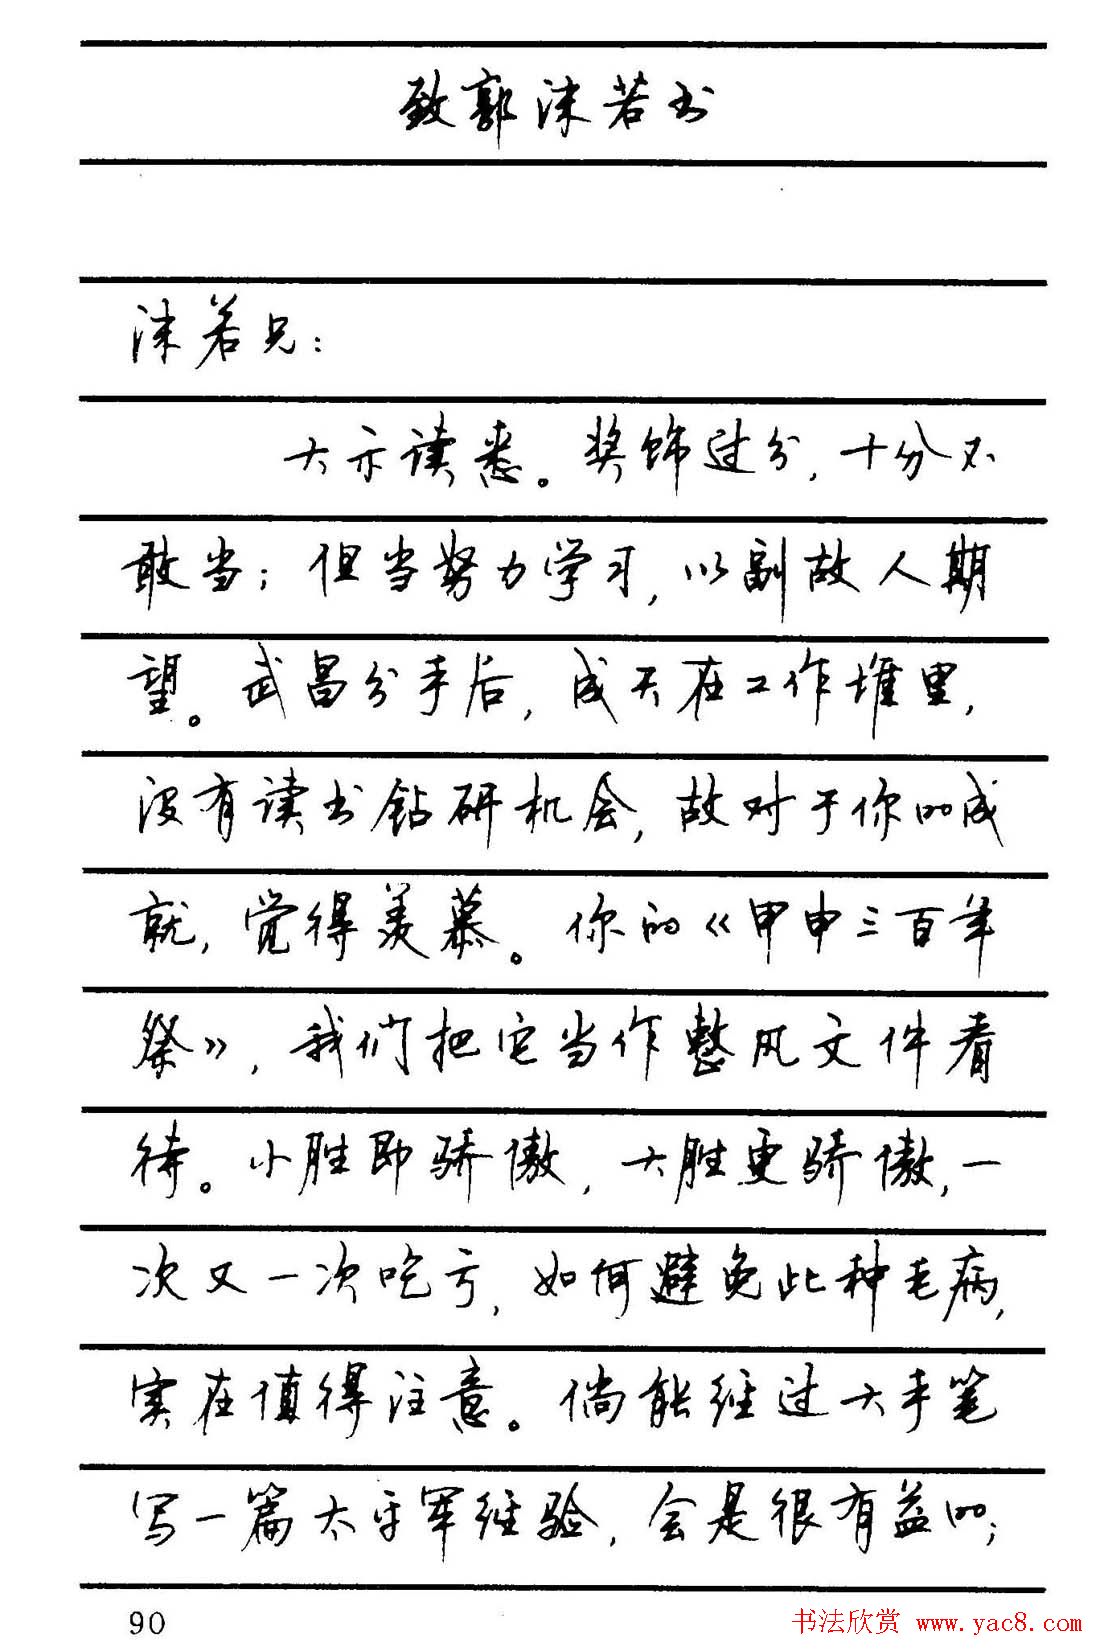 致郭沫若书
沫若兄：
大示读悉。奖饰过分，十分不
敢当；但当努力学习，以副故人期
望。武昌分手后，成天在工作堆里，
没有读书钻研机会，故对于你的成
就，觉得羡慕。你的《甲申三百年
祭》，我们把它当作整风文件看
待。小胜即骄傲，大胜更骄傲，一
次又一次吃亏，如何避免此种毛病，
实在值得注意。倘能经过大手笔
写一篇太平军经验，会是很有益的；
90
书法欣赏 www.yac8.com